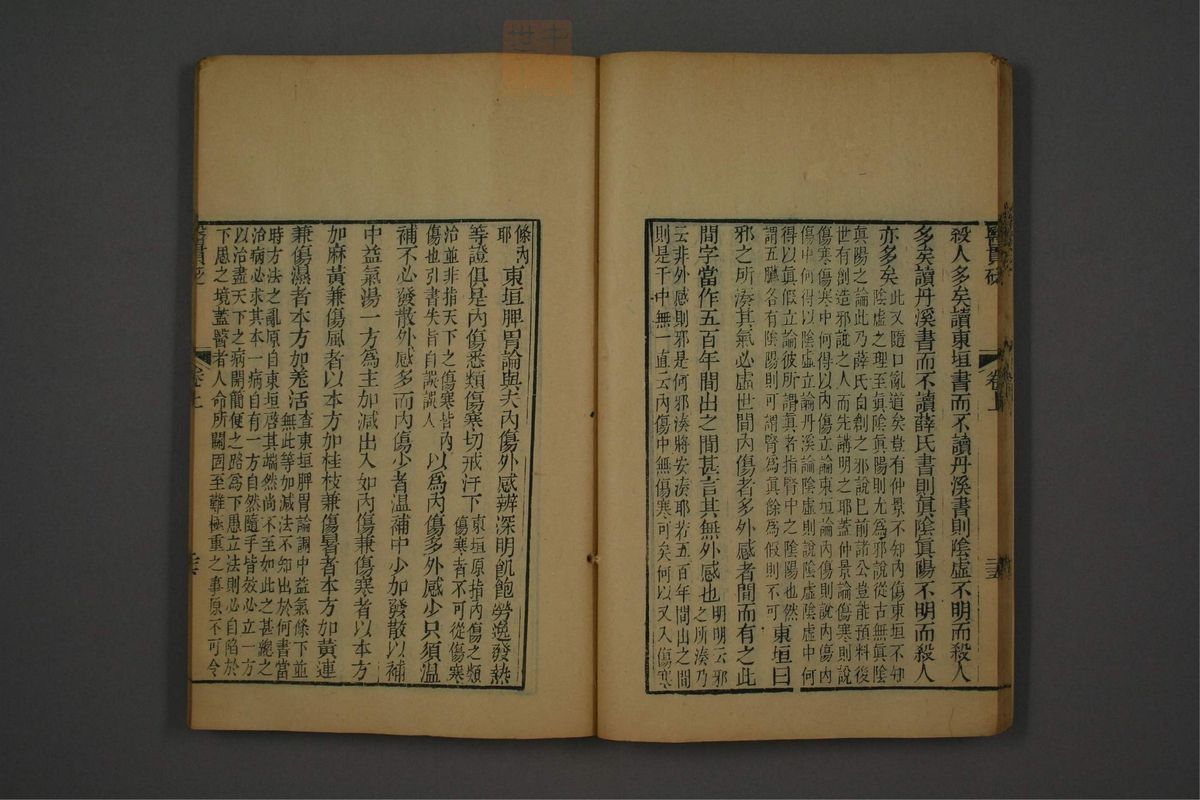 醫貫砭
卷上
殺人多矣讀東垣書而不讀丹溪書則陰虛不明而殺人
多矣讀丹溪書而不讀薛氏書則眞陰眞陽不明而殺人
亦多矣此又隨口亂道矣豈有仲景不知內傷東垣不知
陰虛之理至眞陰眞陽則尤爲邪說從古無眞陰
眞陽之論此乃薛氏自創之邪說已前諸公豈能預料後
世有創造邪說之人而先講明之耶蓋仲景論傷寒則說
傷寒傷寒中何得以內傷立論東垣論內傷則說內傷內
傷中何得以陰虛立論丹溪論陰虛則說陰虛陰虛中何
得以眞假立論彼所謂眞者指腎中之陰陽也然
謂五臟各有陰陽則可謂腎爲眞餘爲假則不可東垣曰
邪之所湊其氣必虛世間內傷者多外感者間而有之此
間字當作五百年間出之間甚言其無外感也明明云邪
之所湊乃
云非外感則邪是何邪湊將安湊耶若五百年間出之間
則是千中無一直云內傷中無傷寒可矣何以又入傷寒
條內
耶東垣脾胃論與夫內傷外感辨深明飢飽勞逸發熱
等證俱是內傷悉類傷寒切戒汗下東垣原指內傷之類
傷寒者不可從傷寒
治並非指天下之傷寒皆內
傷也引書失旨自誤誤人以爲內傷多外感少只須溫
補不必發散外感多而內傷少者溫補中少加發散以補
中益氣湯一方爲主加減出入如內傷兼傷寒者以本方
加麻黃兼傷風者以本方加桂枝兼傷暑者本方加黃連
兼傷濕者本方加羌活查東垣脾胃論調中益氣條下並
無此等加減法不知出於何書當
時方法之亂原自東垣啓其端然尚不至如此之甚總之
治病必求其本一病自有一方自然隨手皆效必立一方
以治盡天下之病開簡便之路爲下愚立法則必自陷於
下愚之境蓋醫者人命所關固至難極重之事原不可令
醫貫砭
卷上